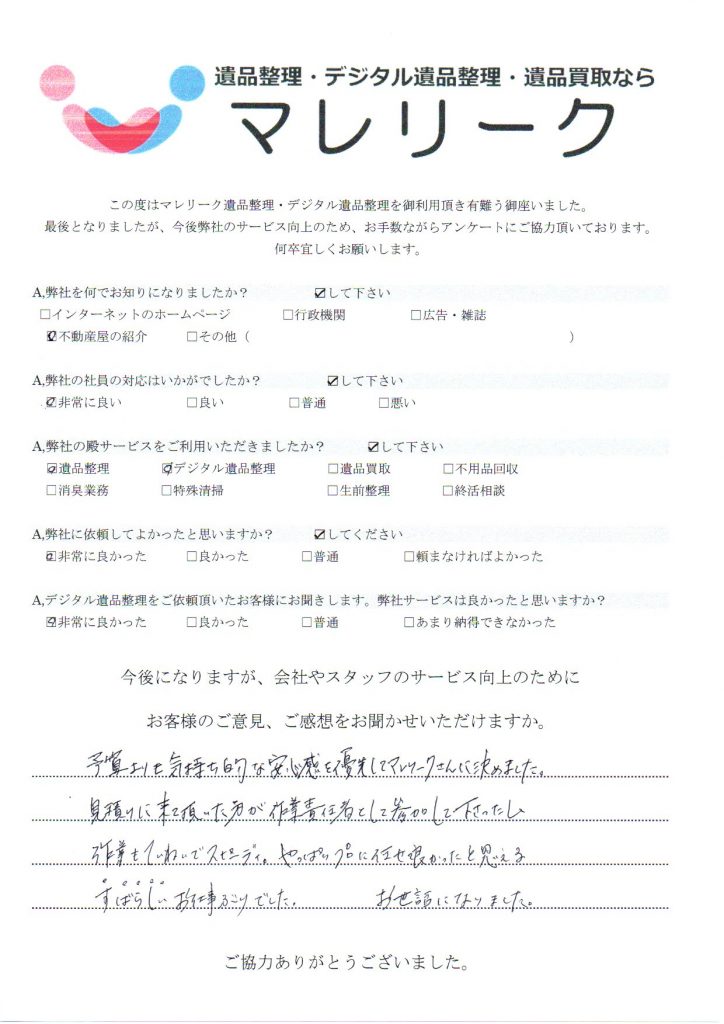 遺品整理・デジタル遺品整理・遺品買取なら
マレリーク
この度はマレリーク遺品整理・デジタル遺品整理を御利用頂き有難う御座いました。
最後となりましたが、今後弊社のサービス向上のため、お手数ながらアンケートにご協力頂いております。
何卒宜しくお願いします。
A,弊社を何でお知りになりましたか？ ☑して下さい
□インターネットのホームページ □行政機関 □広告・雑誌
☑不動産屋の紹介 □その他（ ）
A,弊社の社員の対応はいかがでしたか？ ☑して下さい
☑非常に良い □良い □普通 □悪い
A,弊社の殿サービスをご利用いただきましたか？ ☑して下さい
☑遺品整理 ☑デジタル遺品整理 □遺品買取 □不用品回収
□消臭業務 □特殊清掃 □生前整理 □終活相談
A,弊社に依頼してよかったと思いますか？ ☑してください
☑非常に良かった □良かった □普通 □頼まなければよかった
A,デジタル遺品整理をご依頼頂いたお客様にお聞きします。弊社サービスは良かったと思いますか？
☑非常に良かった □良かった □普通 □あまり納得できなかった
今後になりますが、会社やスタッフのサービス向上のために
お客様のご意見、ご感想をお聞かせいただけますか。
予算よりも気持ち的な安心感を優先してマレリークさんに決めました。
見積りに来て頂いた方が作業責任者として参加して下さったし
作業もていねいでスピーディ。やっぱりプロに任せ良かったと思える
すばらしいお仕事ぶりでした。 お世話になりました。
ご協力ありがとうございました。